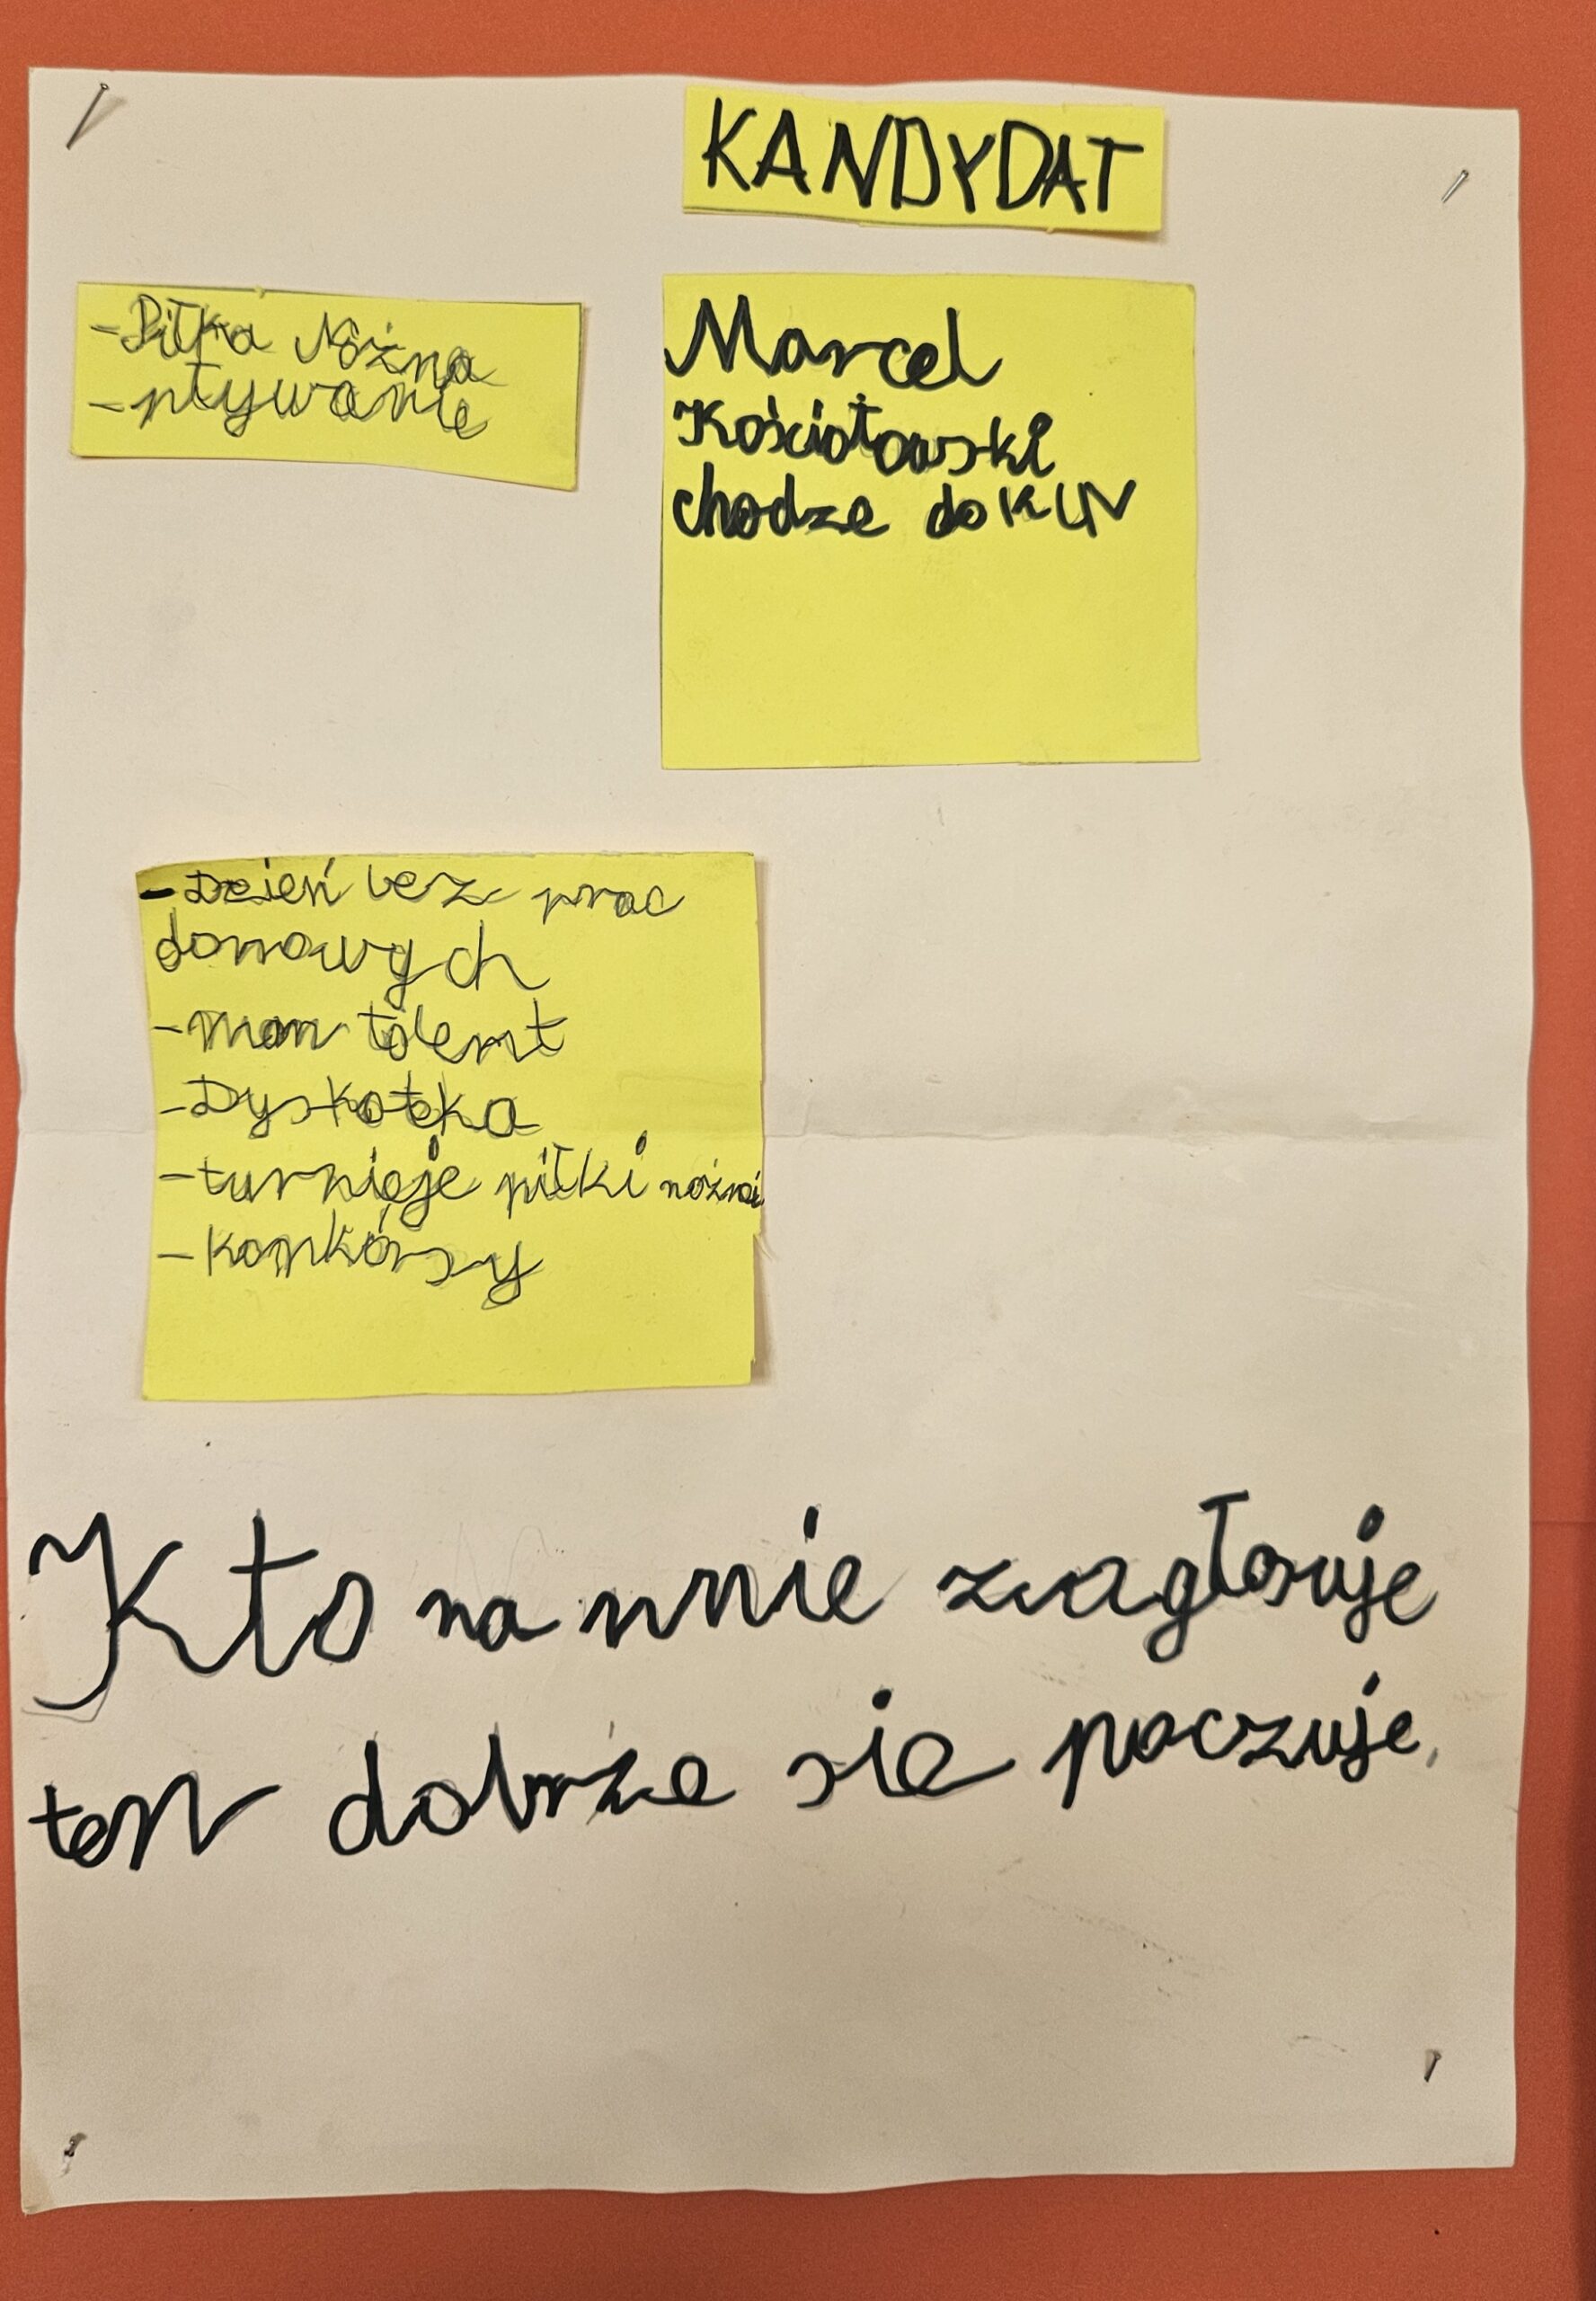 KANDYDAT
- Piłka Nożna
- pływanie
Marcel
Kościołowski
chodze do K
- Dzień bez prac
domowych
- mam talent
- Dyskoteka
- turnieje piłki nożnej
- konkórsy
Kto na mnie zagłosuje
ten dobrze sie poczuje.